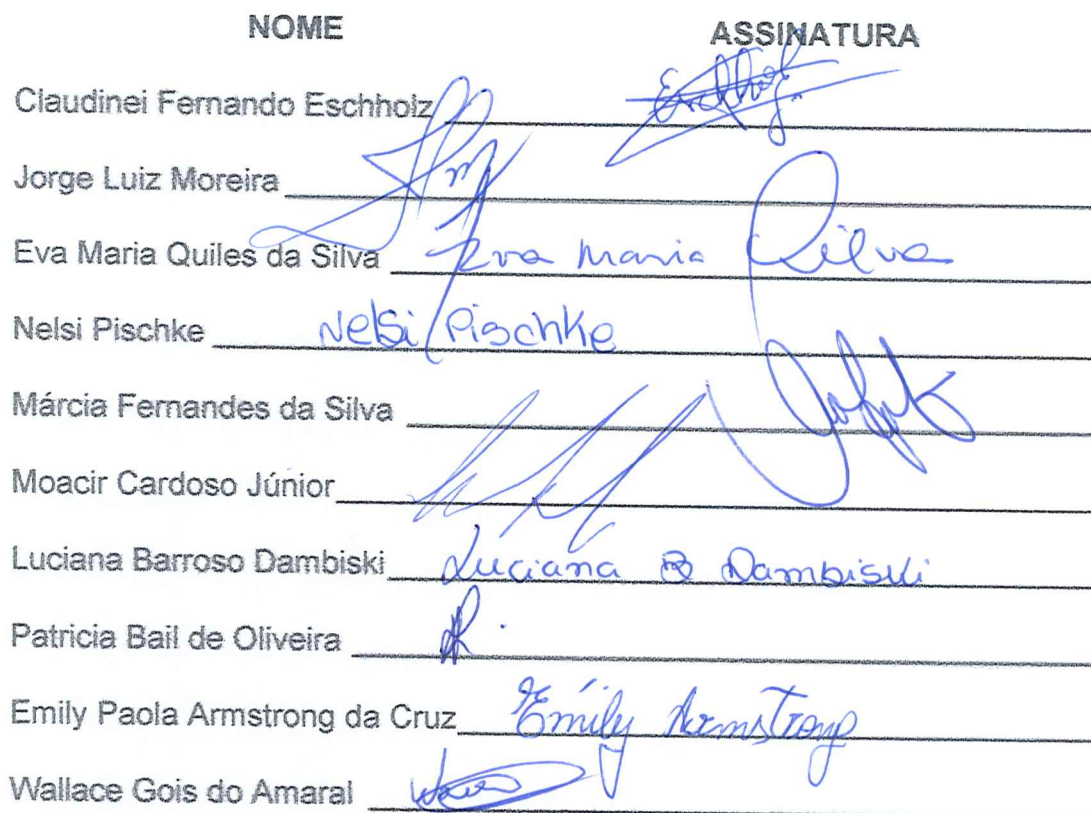 NOME ASSINATURA
Claudinei Fernando Eschholz
Jorge Luiz Moreira
Eva Maria Quiles da Silva Eva Maria Silva
Nelsi Pischke Nelsi Pischke
Márcia Fernandes da Silva
Moacir Cardoso Júnior
Luciana Barroso Dambiski Luciana B Dambiski
Patricia Bail de Oliveira
Emily Paola Armstrong da Cruz Emily Armstrong
Wallace Gois do Amaral